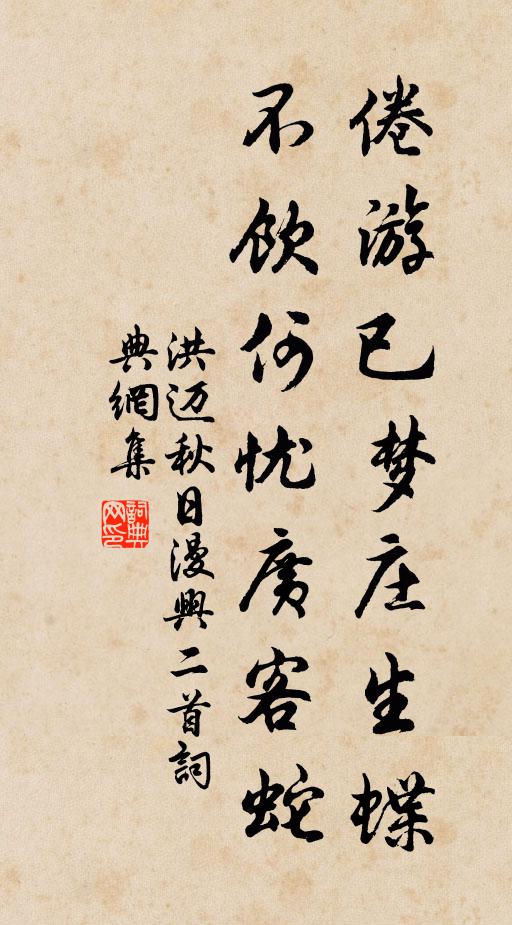 倦游已梦庄生蝶
不饮何忧廣客蛇
洪迈秋日漫興二首詞
典網集
詞典
网印